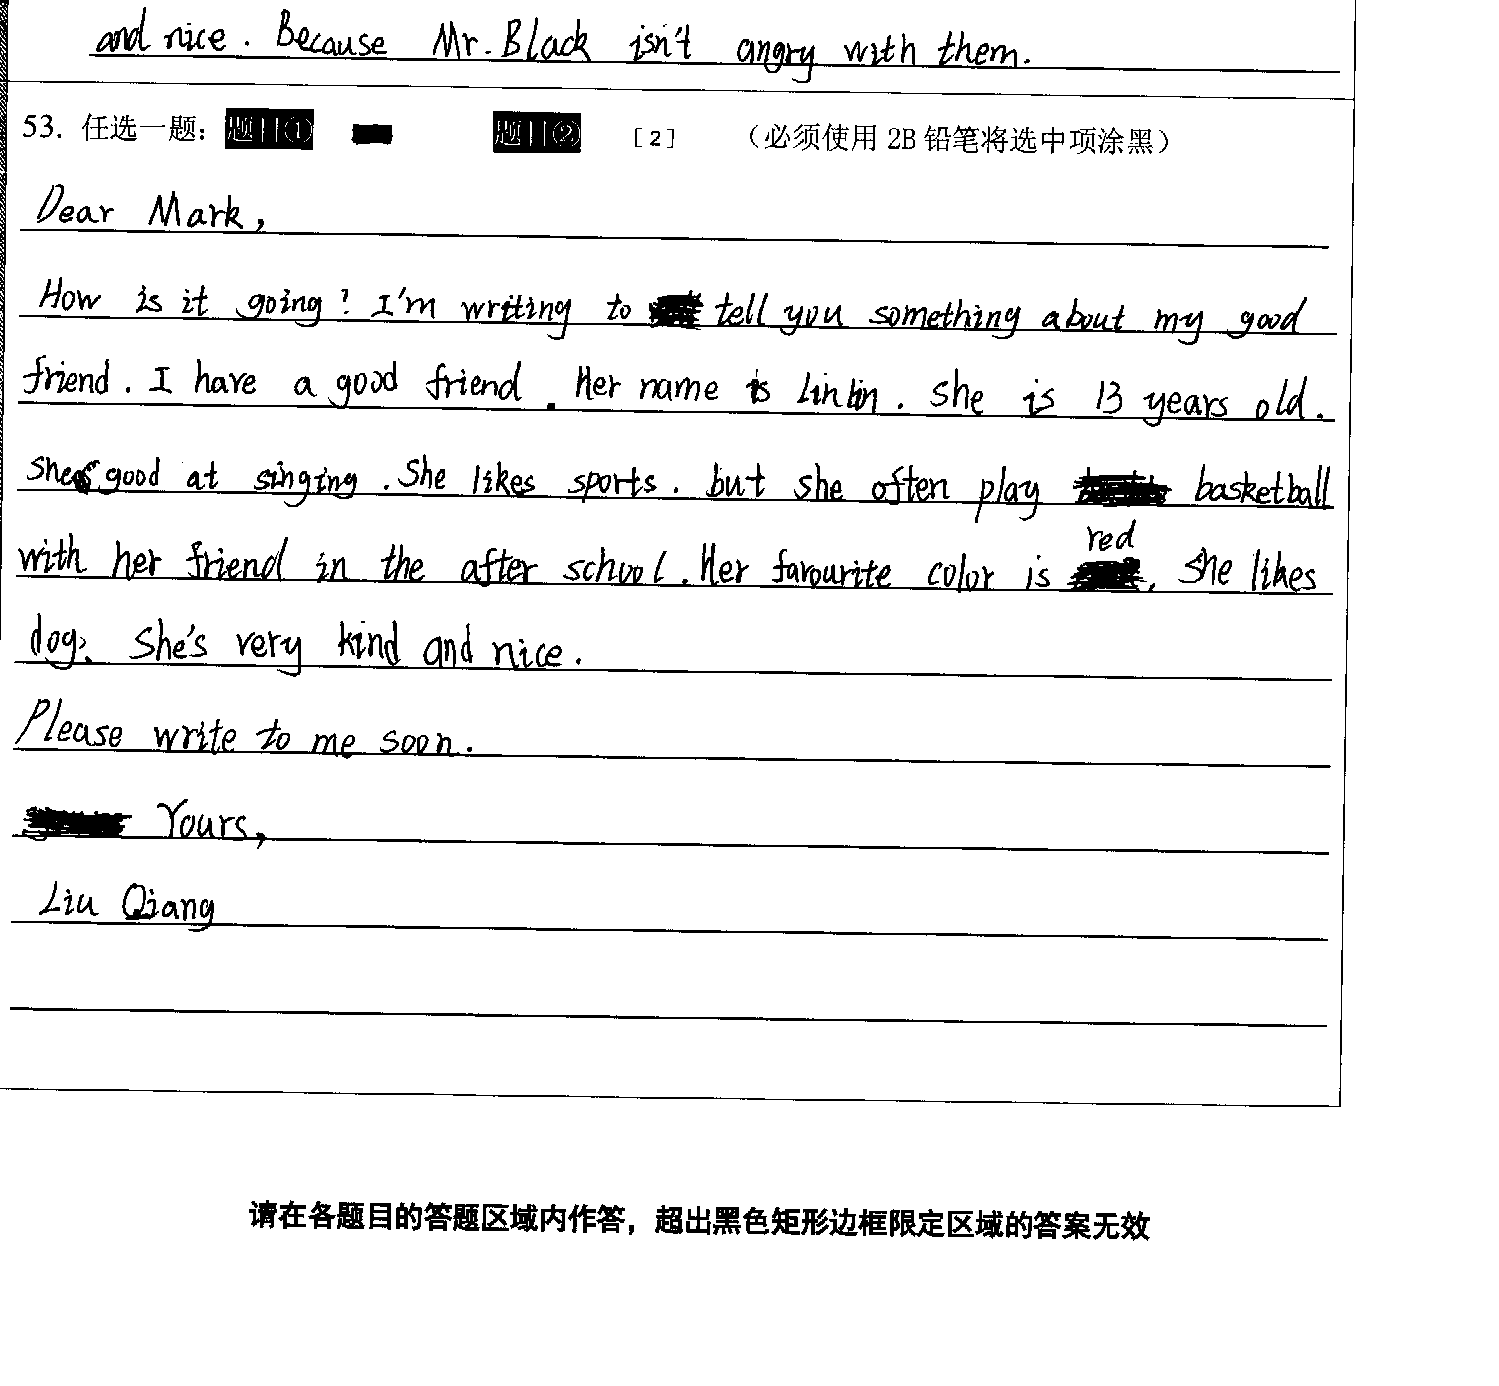 and nice. Because Mr. Black isn't angry with them.
53. 任选一题: 题目① 题目② [2] (必须使用 2B 铅笔将选中项涂黑)
Dear Mark,
How is it going? I'm writing to tell you something about my good
friend. I have a good friend. Her name is Linlin. She is 13 years old.
She's good at singing. She likes sports. but she often play basketball
with her friend in the after school. Her favourite color is red. She likes
dog. She's very kind and nice.
Please write to me soon.
Yours,
Liu Qiang
请在各题目的答题区域内作答，超出黑色矩形边框限定区域的答案无效